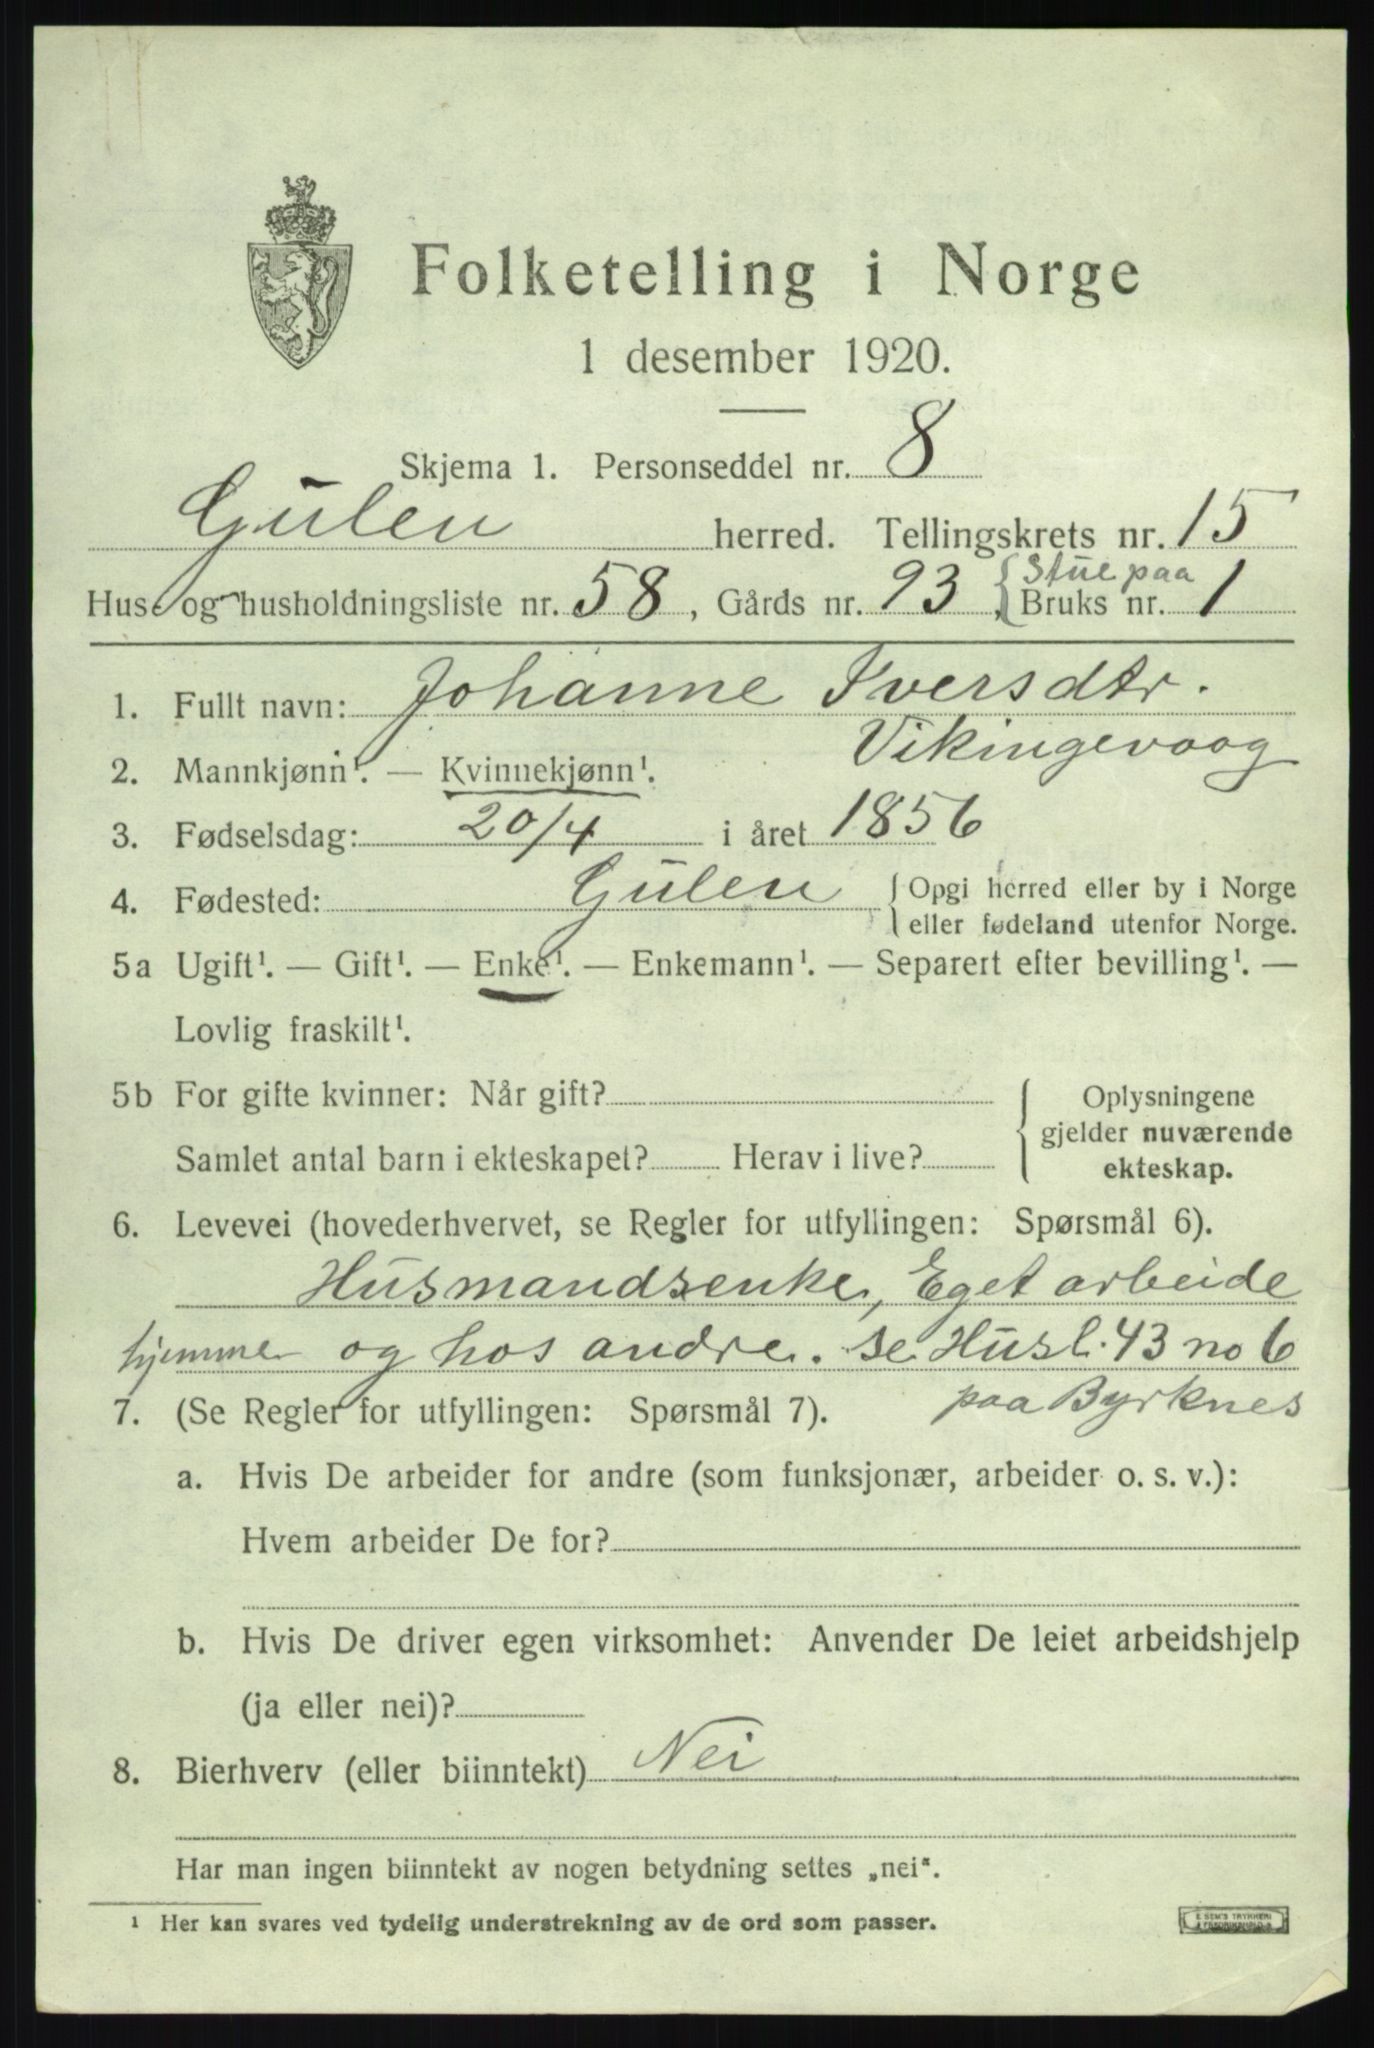 Folketelling i Norge
1 desember 1920.
Skjema 1. Personseddel nr. 8
Gulen herred. Tellingskrets nr. 15
Stue paa
Hus- og husholdningsliste nr. 58, Gårds nr. 93, Bruks nr. 1
1. Fullt navn: Johanne Iversdtr.
Vikingevaag
2. Mannkjønn¹. — Kvinnekjønn¹.
3. Fødselsdag: 20/4 i året 1856
4. Fødested: Gulen { Opgi herred eller by i Norge
eller fødeland utenfor Norge.
5a Ugift¹. — Gift¹. — Enke¹. — Enkemann¹. — Separert efter bevilling¹. —
Lovlig fraskilt¹.
5b For gifte kvinner: Når gift?
Samlet antal barn i ekteskapet? Herav i live?
{ Oplysningene
gjelder nuværende
ekteskap.
6. Levevei (hovederhvervet, se Regler for utfyllingen: Spørsmål 6).
Husmandsenke, Eget arbeide
hjemme og hos andre. se Husl. 43 no 6
paa Byrknes
7. (Se Regler for utfyllingen: Spørsmål 7).
a. Hvis De arbeider for andre (som funksjonær, arbeider o. s. v.):
Hvem arbeider De for?
b. Hvis De driver egen virksomhet: Anvender De leiet arbeidshjelp
(ja eller nei)?
8. Bierhverv (eller biinntekt) Nei
Har man ingen biinntekt av nogen betydning settes „nei".
¹ Her kan svares ved tydelig understrekning av de ord som passer.